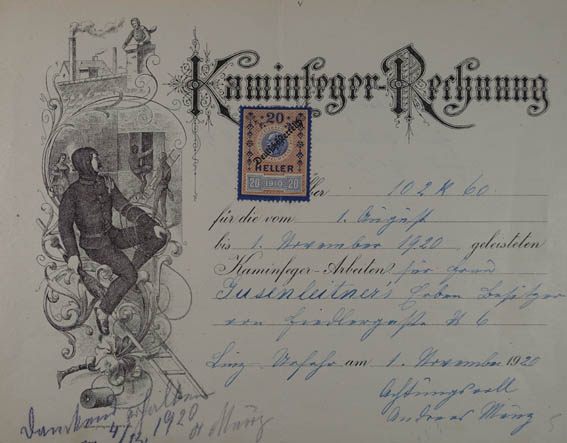 Kaminfeger-Rechnung
20
Deutschösterreich
HELLER
20 1910 20
über 102 K 60
für die vom 1. August
bis 1. November 1920, geleisteten
Kaminfeger-Arbeiten für Frau
Erben Besitzer
von Fiedlergasse N 6
Linz Urfahr am 1. November 1920
Achtungsvoll
Andreas März
Dankend erhalten
4/12. 1920
A März